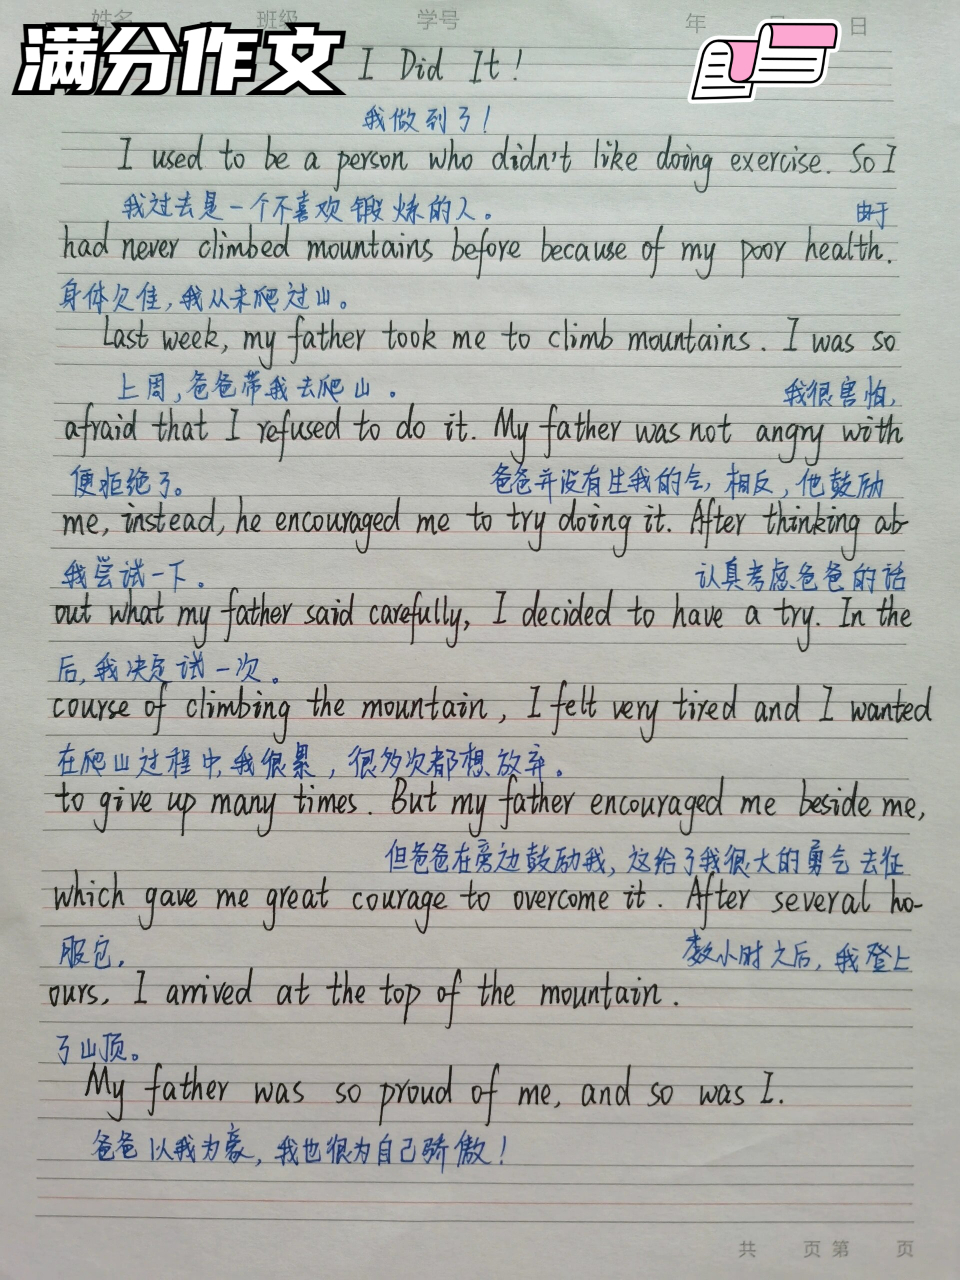 姓名 班级 学号 年 月 日
满分作文
I Did It!
我做到了!
I used to be a person who didn't like doing exercise. So I
我过去是一个不喜欢锻炼的人。 由于
had never climbed mountains before because of my poor health.
身体欠佳,我从未爬过山。
Last week, my father took me to climb mountains. I was so
上周,爸爸带我去爬山。 我很害怕,
afraid that I refused to do it. My father was not angry with
便拒绝了。 爸爸并没有生我的气,相反,他鼓励
me, instead, he encouraged me to try doing it. After thinking ab-
我尝试一下。 认真考虑爸爸的话
out what my father said carefully, I decided to have a try. In the
后,我决定试一次。
course of climbing the mountain, I felt very tired and I wanted
在爬山过程中,我很累,很多次都想放弃。
to give up many times. But my father encouraged me beside me,
但爸爸在旁边鼓励我,这给了我很大的勇气去征
which gave me great courage to overcome it. After several ho-
服它. 数小时之后,我登上
ours, I arrived at the top of the mountain.
了山顶。
My father was so proud of me, and so was I.
爸爸以我为豪,我也很为自己骄傲!
共 页 第 页